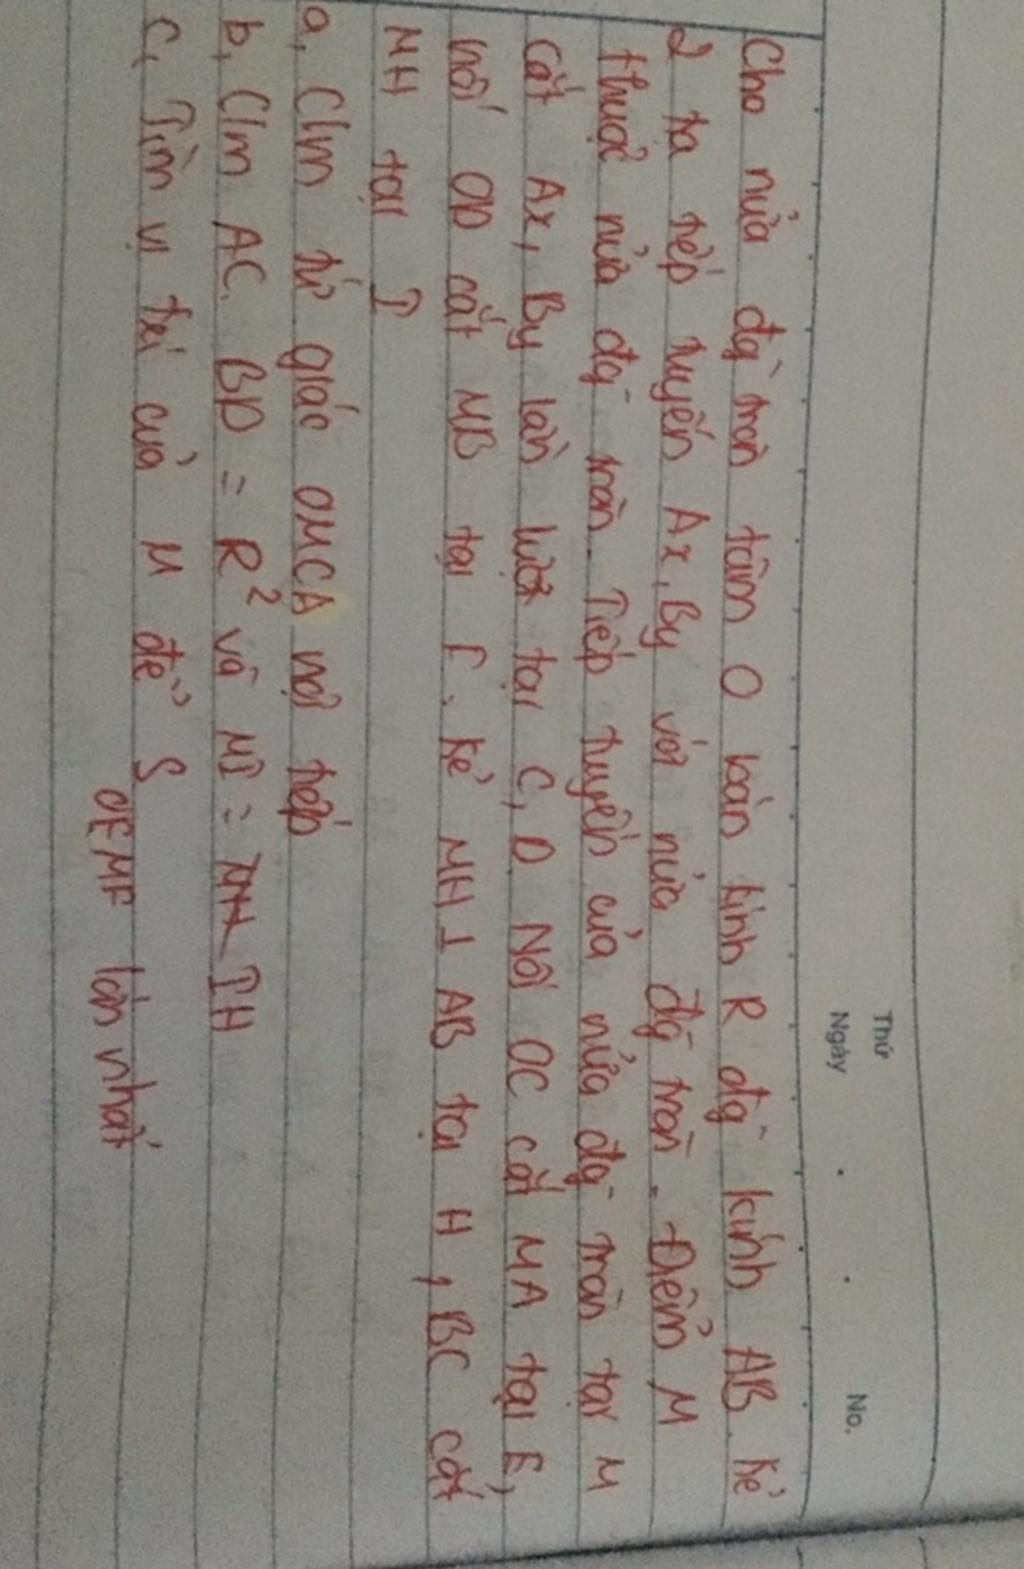 Thứ
Ngày
No.
Cho nửa đg tròn tâm O bán kính R đg kính AB. kẻ
2 ta tiếp tuyến Ax, By với nửa đg tròn. Điểm M
thuộc nửa đg tròn. Tiếp tuyến của nửa đg tròn tại M
cắt Ax, By lần lượt tại C, D Nối OC cắt MA tại E,
nối OD cắt MB tại F. Kẻ MH ⊥ AB tại H, BC cắt
MH tại I
a, C/m tứ giác OMCA nội tiếp
b, C/m AC. BD = R² và MI = IH
c, Tìm vị trí của M để S
OEMF lớn nhất